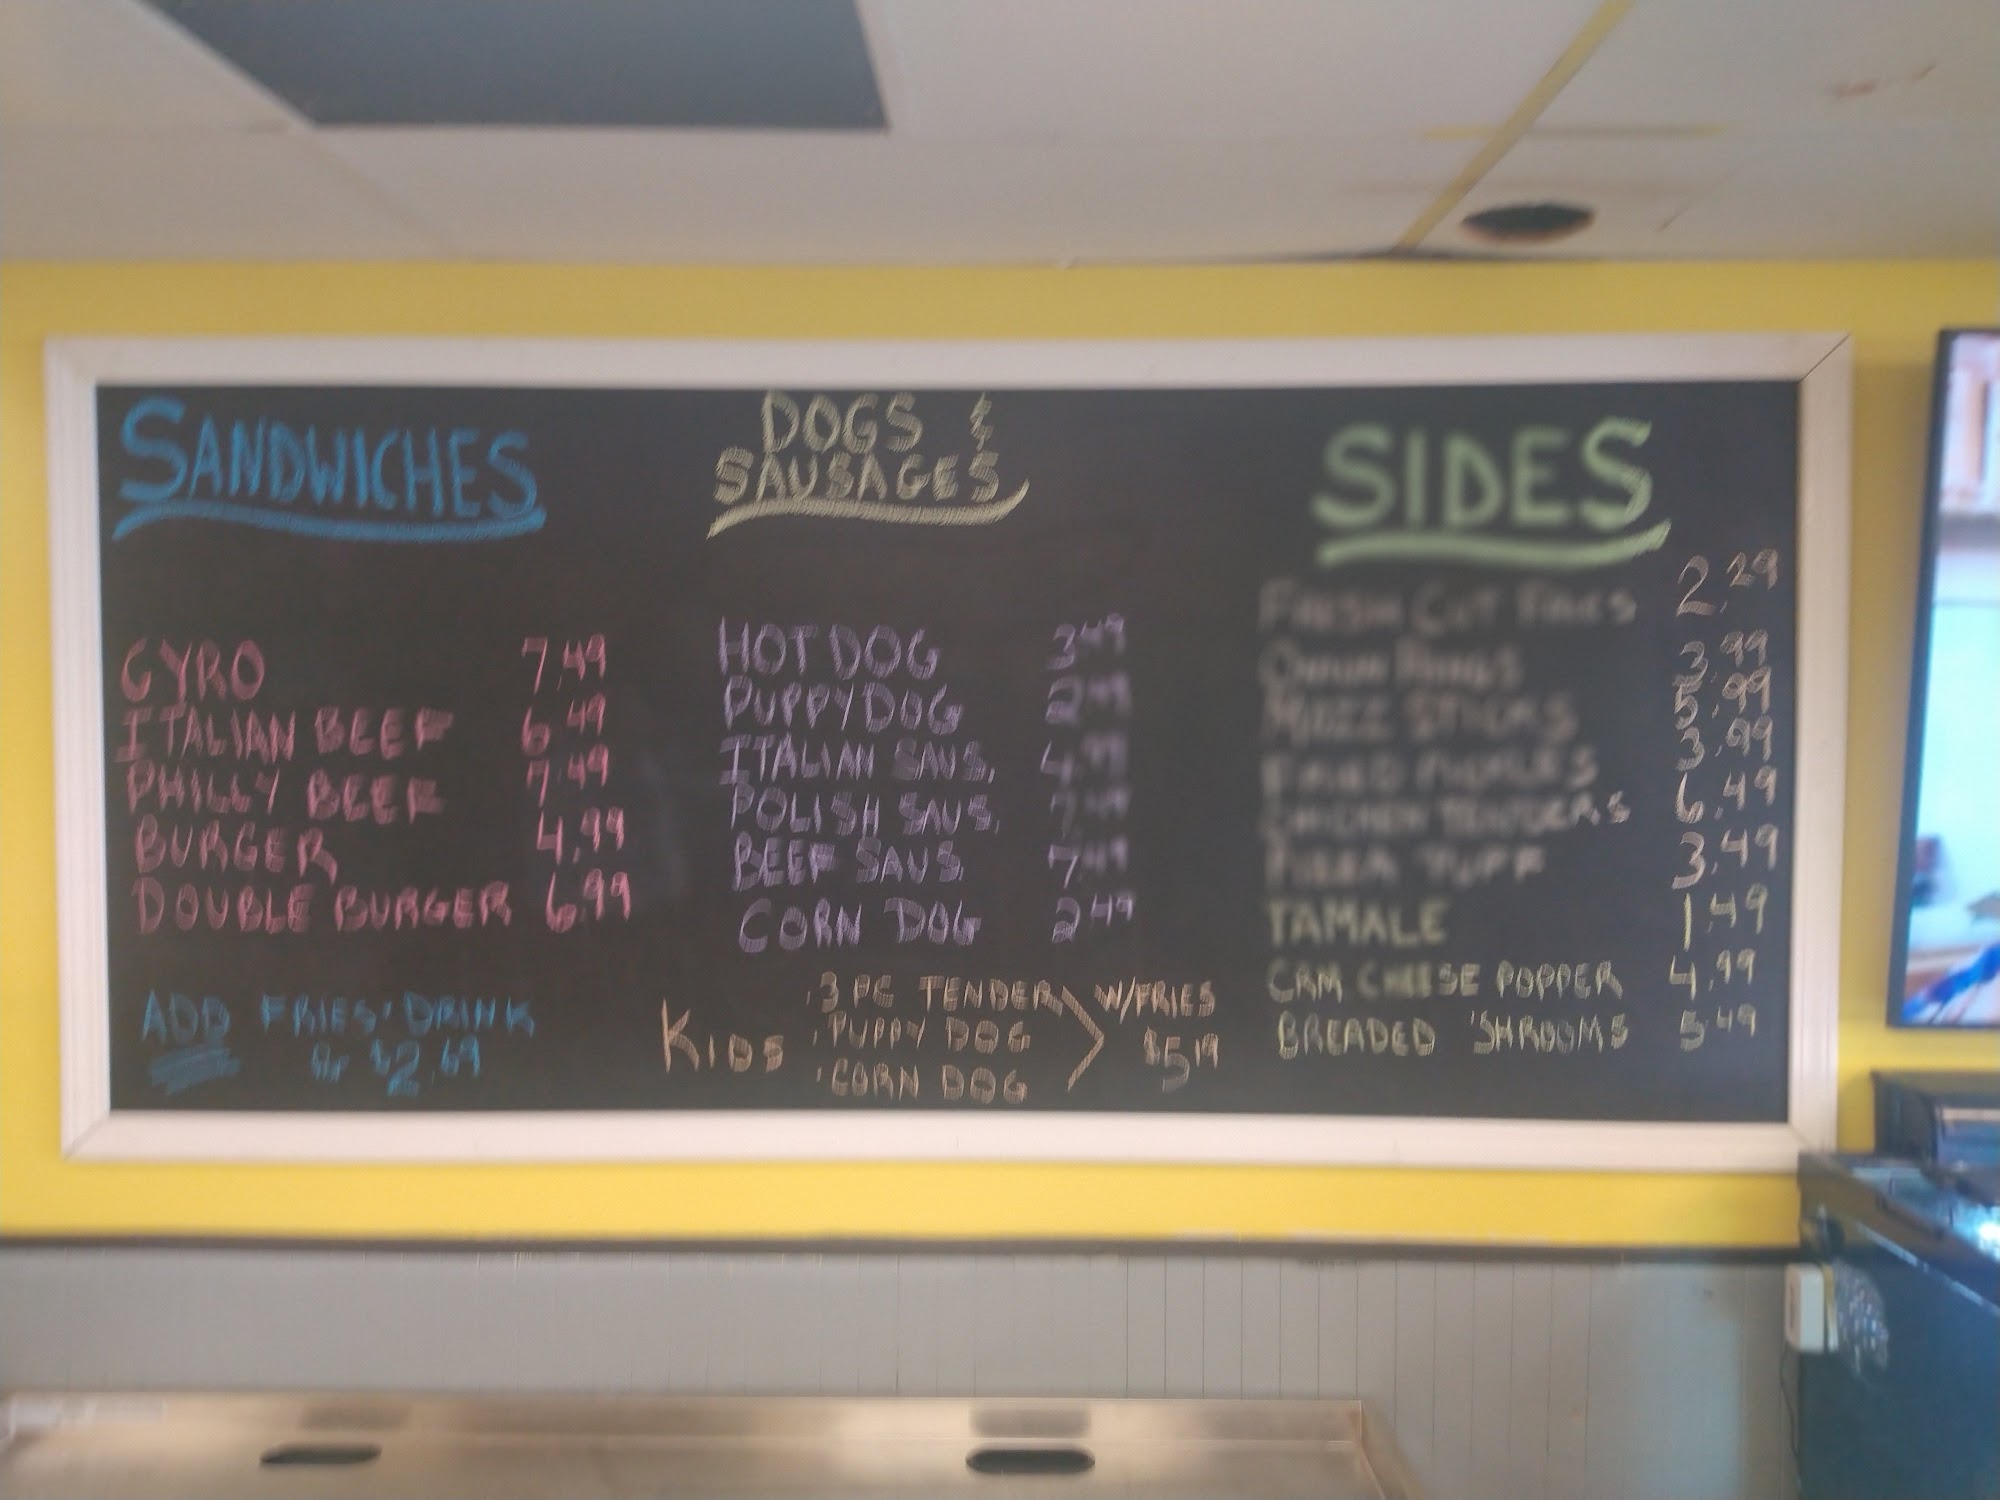 SANDWICHES
GYRO 7.49
ITALIAN BEEF 6.49
PHILLY BEEF 7.49
BURGER 4.99
DOUBLE BURGER 6.99
ADD FRIES · DRINK
$2.69
DOGS &
SAUSAGES
HOT DOG 3.49
PUPPY DOG 2.49
ITALIAN SAUS. 4.99
POLISH SAUS.
BEEF SAUS. 7.49
CORN DOG 2.49
KIDS
· 3 PC TENDER
· PUPPY DOG
· CORN DOG
W/FRIES
$5.19
SIDES
FRESH CUT FRIES 2.29
ONION RINGS 3.99
MOZZ STICKS 5.99
FRIED PICKLES 3.99
CHICKEN TENDERS 6.49
PIZZA PUFF 3.49
TAMALE 1.49
CRM. CHEESE POPPER 4.99
BREADED 'SHROOMS 5.49